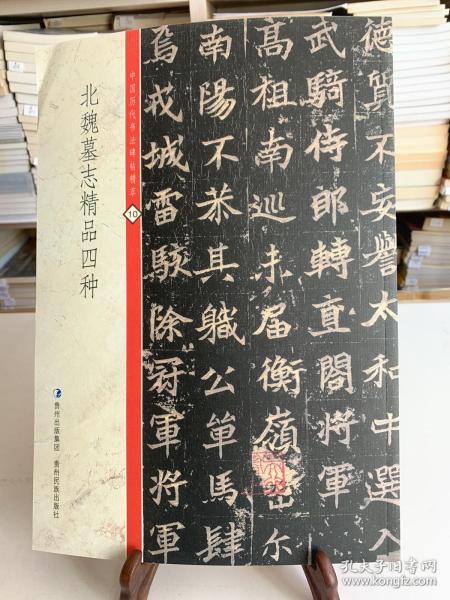 北魏墓志精品四种
中国历代书法碑帖精萃
10
贵州出版集团 贵州民族出版社
德箕不妄譽太和中選入
武騎侍郎轉直閤將軍
高祖南巡未届衡嶺密尔
南陽不恭其職公單馬肆
烏戎城雷駭除冠軍將軍
孔夫子旧书网